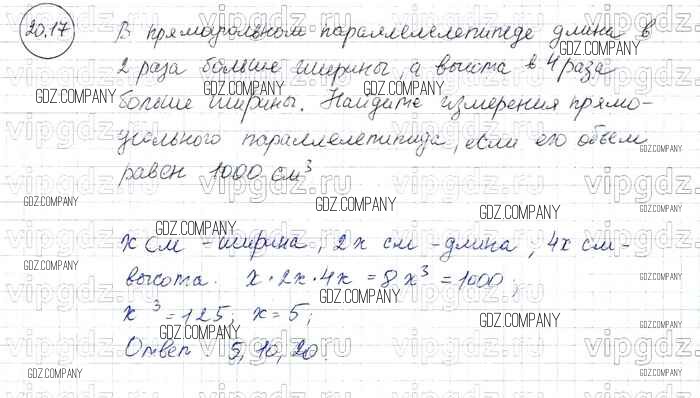 20.17
В прямоугольном параллелепипеде длина в
2 раза больше ширины, а высота в 4 раза
больше ширины. Найдите измерения прямо-
угольного параллелепипеда, если его объем
равен 1000 см³
x см - ширина, 2x см - длина; 4x см -
высота. x · 2x · 4x = 8x³ = 1000;
x³ = 125; x = 5;
Ответ: 5, 10, 20.